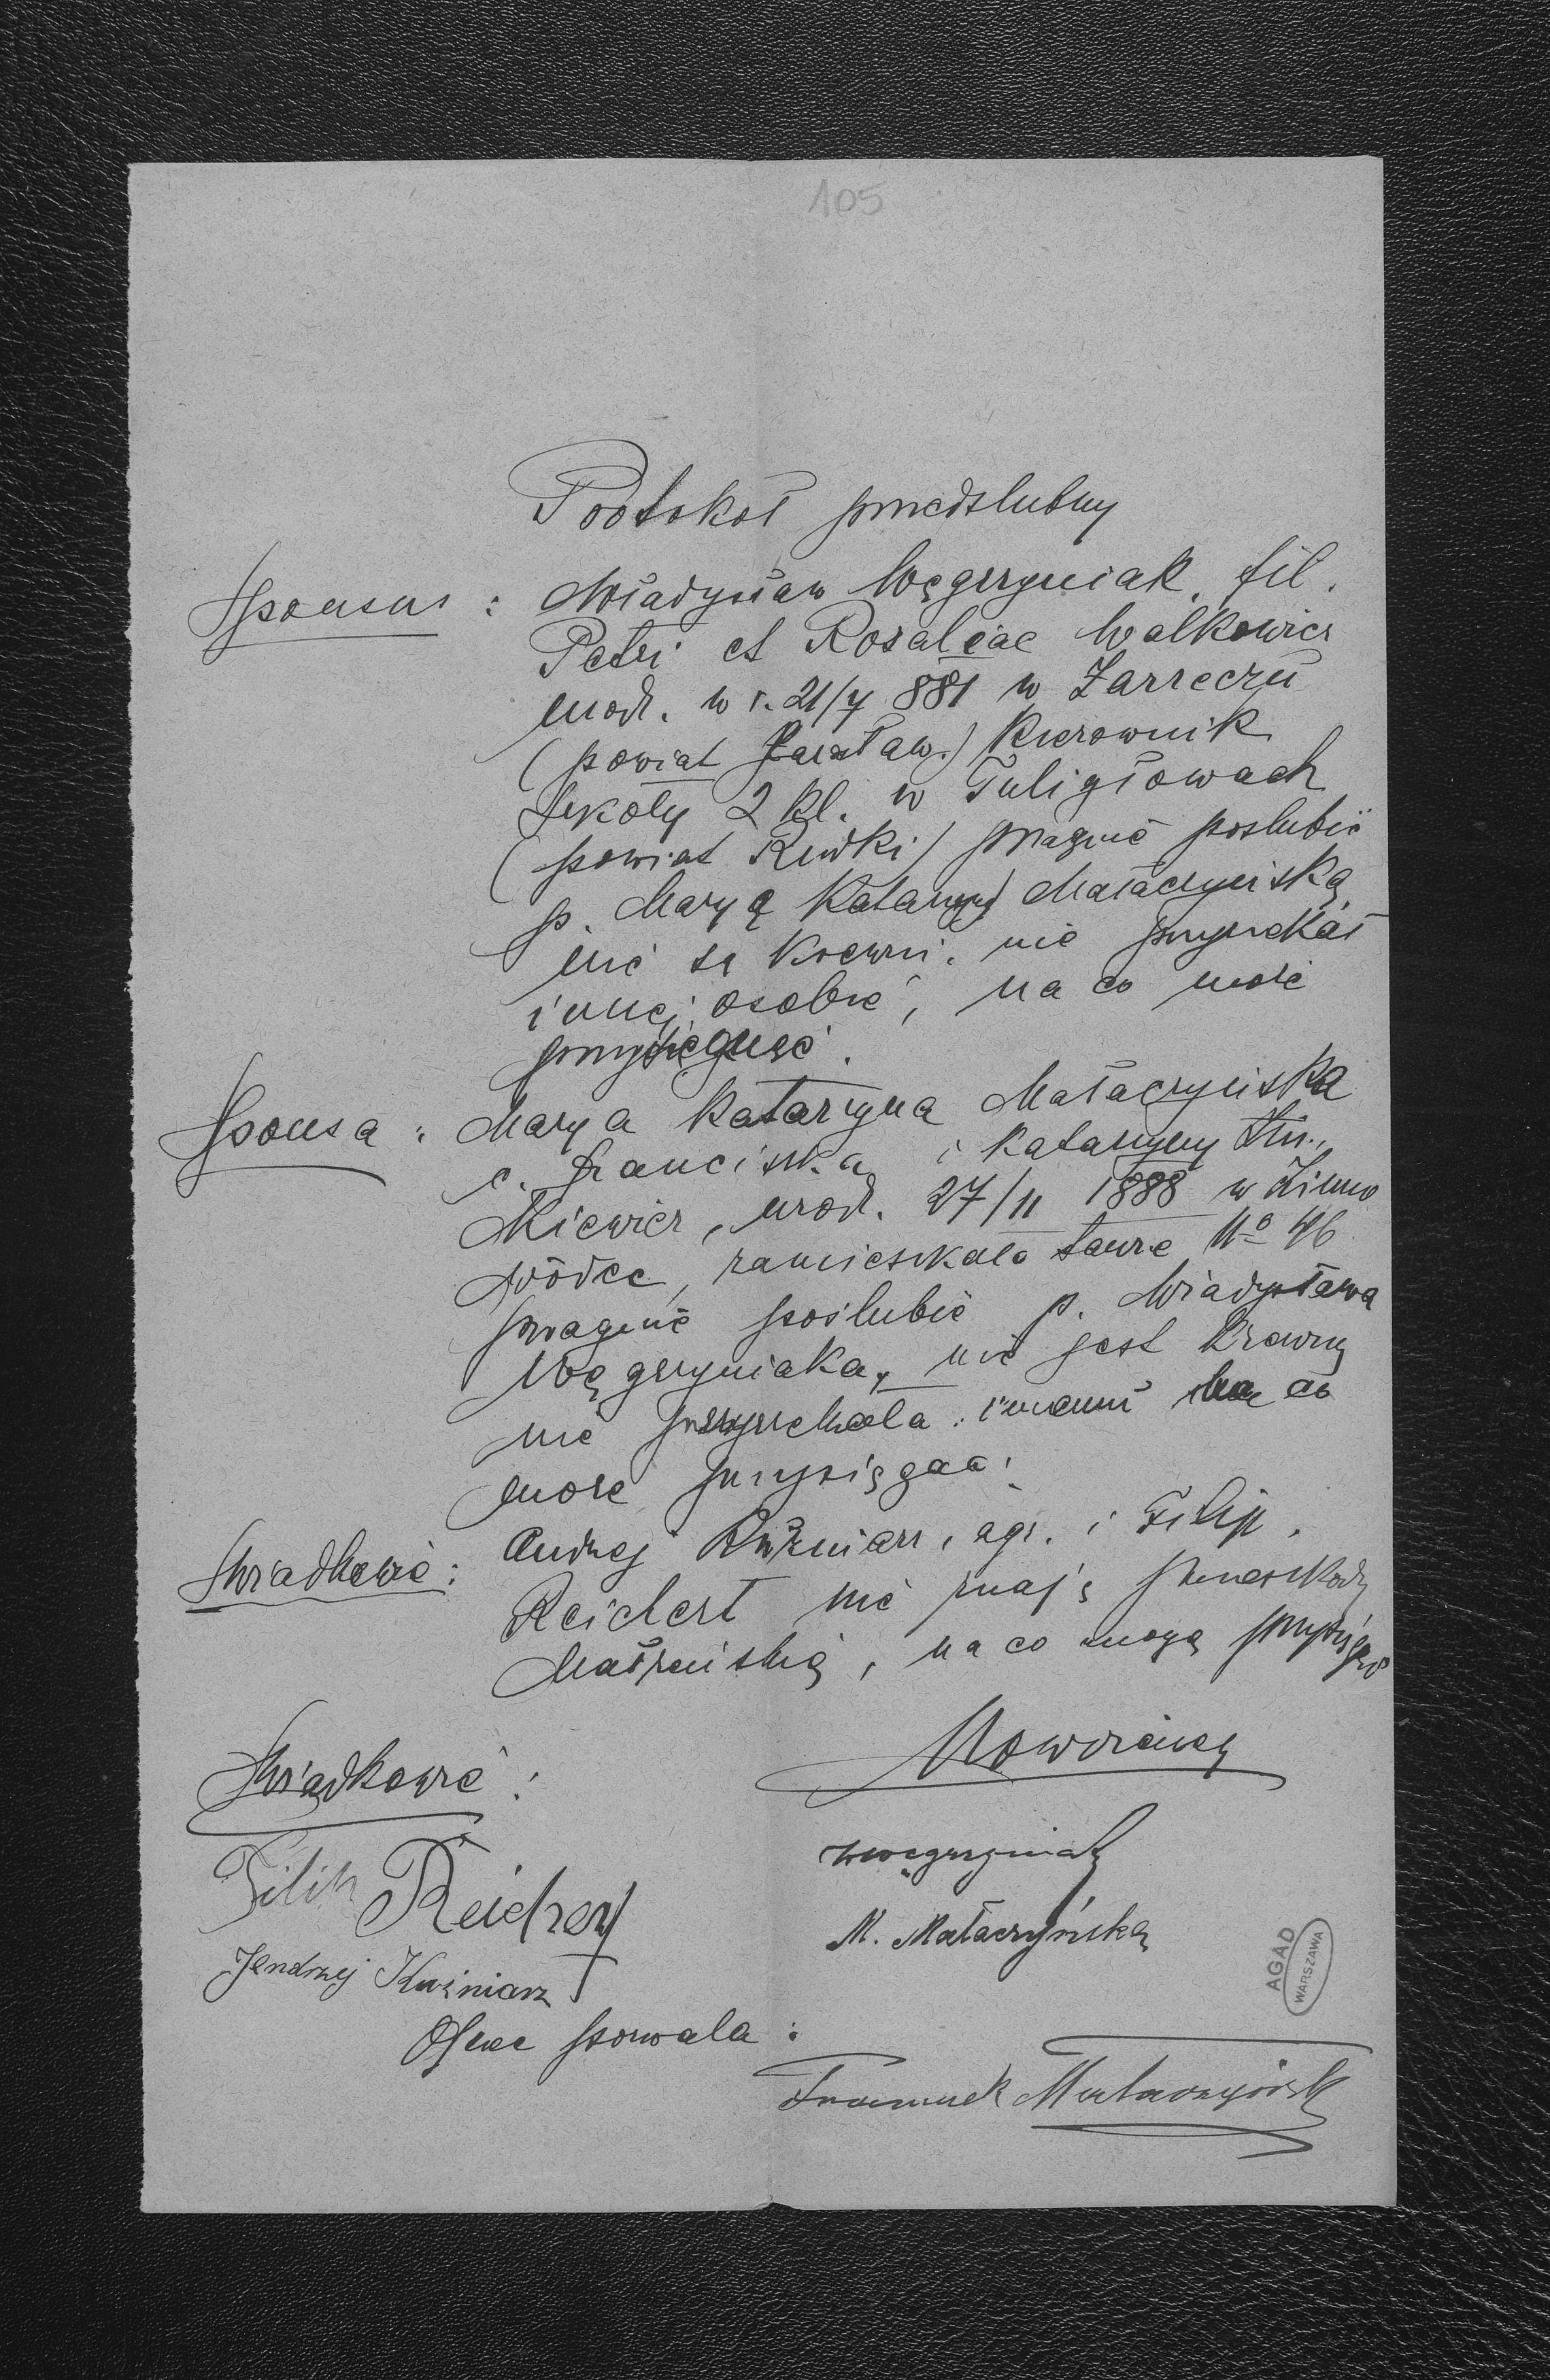 105
Protokół przedślubny
Sponsus : Władysław Węgrzyniak, fil.
Petri et Rosaliae Walkowicz
urodz. w r. 21/7 881 w Zarzeczu
(powiat Jarosław.) kierownik
szkoły 2 kl. w Tuligłowach
(powiat Rudki) pragnie poślubić
p. Maryą Katarzynę Małaczyńską
nie są krewni, nie przyrzekał
innej osobie, na co może
przysięgnąć.
Sponsa : Marya Katarzyna Małaczyńska
c. Franciszka i Katarzyny
kiewicz, urodz. 27/11 1888 w Zimno
wódce, zamieszkała tamże No 46
pragnie poślubić p. Władysława
Węgrzyniaka, nie jest krewną
nie przyrzekała innemu na co
może przysięgać.
Świadkowie : Andrzej Kuźniarz, agr. i Filip
Reichert nie znają przeszkody
małżeńskiej, na co mogą przysięgać
Świadkowie :
Nowożeńcy
Filip Reichert
WWęgrzyniak
Jendrzej Kuźniarz
M. Małaczyńska
Ojciec pozwala :
Franciszek Małaczyński
AGAD
WARSZAWA